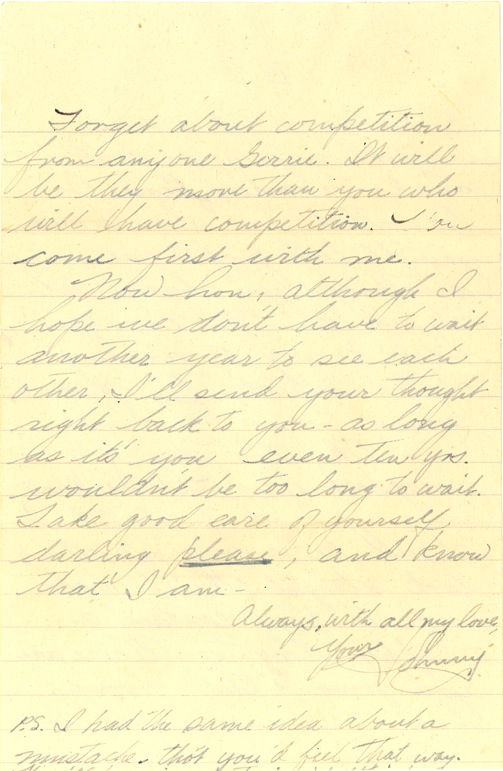 Forget about competition
from anyone Gerrie. It will
be they more than you who
will have competition. You
come first with me.
Now hon, although I
hope we don't have to wait
another year to see each
other, I'll send your thought
right back to you - as long
as it's you even ten yrs.
wouldn't be too long to wait.
Take good care of yourself
darling please, and know
that I am -
Always, with all my love,
Your Johnny
P.S. I had the same idea about a
mustache - thot you'd feel that way.